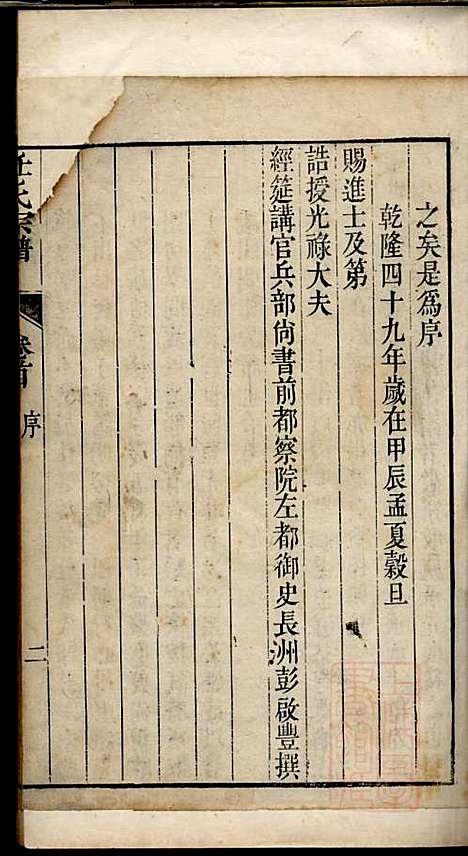 之矣是爲序
乾隆四十九年歲在甲辰孟夏穀旦
賜進士及第
誥授光祿大夫
經筵講官兵部尚書前都察院左都御史長洲彭啟豐撰
氏宗譜
卷首
序
二